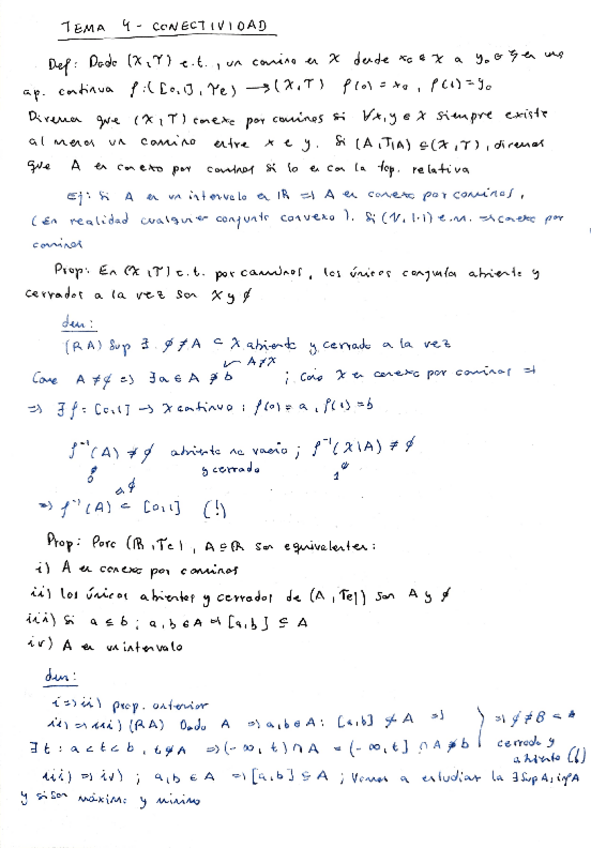 TEMA 4 - CONECTIVIDAD
Def: Dado (X,T) e.t., un camino en X desde x₀ ∈ X a y₀ ∈ X es una
ap. continua f: ([0,1], Te) → (X,T) f(0) = x₀, f(1) = y₀
Diremos que (X,T) conexo por caminos si ∀x,y ∈ X siempre existe
al menos un camino entre x e y. Si (A,T|A) ⊆ (X,T), diremos
que A es conexo por caminos si lo es con la top. relativa
Ej: Si A es un intervalo en ℝ ⇒ A es conexo por caminos.
(En realidad cualquier conjunto convexo). Si (V, |·|) e.n. ⇒ conexo por
caminos
Prop: En (X,T) c.t. por caminos, los únicos conjuntos abiertos y
cerrados a la vez son X y ∅
dem:
(RA) Sup ∃ ∅ ≠ A ⊂ X abierto y cerrado a la vez
A ≠ X
Como A ≠ ∅ ⇒ ∃a ∈ A ∌ b ; como X es conexo por caminos ⇒
⇒ ∃ f: [0,1] → X continua : f(0) = a, f(1) = b
f⁻¹(A) ≠ ∅ abierto no vacío ; f⁻¹(X\A) ≠ ∅
0 y cerrado 1
⇒ f⁻¹(A) ⊂ [0,1] (!)
Prop: Para (ℝ,Te), A ⊆ ℝ son equivalentes:
i) A es conexo por caminos
ii) los únicos abiertos y cerrados de (A, Te|) son A y ∅
iii) Si a ≤ b ; a,b ∈ A ⇒ [a,b] ⊆ A
iv) A es un intervalo
dem:
i ⇒ ii) prop. anterior
ii) ⇒ iii) (RA) Dado A ⇒ a,b ∈ A : [a,b] ⊄ A ⇒ ⇒ ∅ ≠ B ⊂ A
∃t : a < t < b, t ∉ A ⇒ (-∞, t) ∩ A = (-∞, t] ∩ A ∌ b cerrado y
abierto (!)
iii) ⇒ iv) ; a,b ∈ A ⇒ [a,b] ⊆ A ; Vamos a estudiar la ∃ sup A, inf A
y si son máximo y mínimo